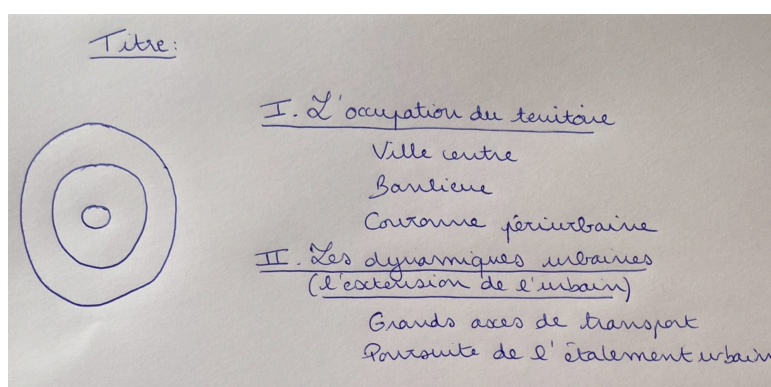 Titre:
I. L'occupation du territoire
Ville centre
Banlieue
Couronne périurbaine
II. Les dynamiques urbaines
(l'extension de l'urbain)
Grands axes de transport
Poursuite de l'étalement urbain